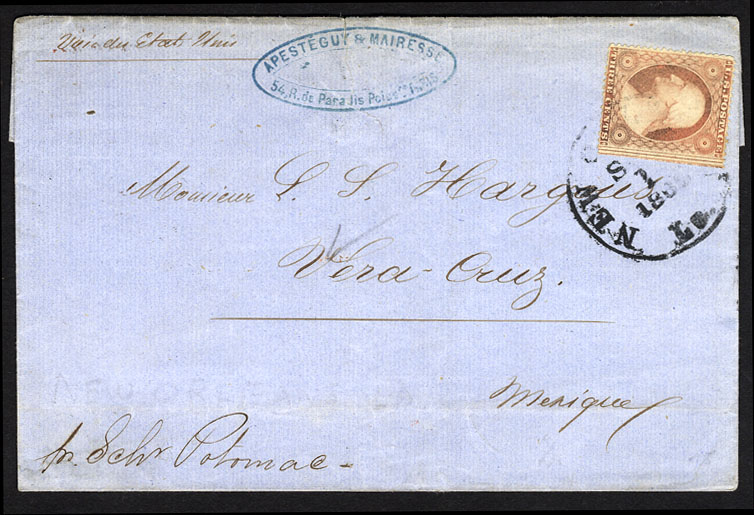 Voie des Etats Unis
APESTÉGUY & MAIRESSE
54, R. de Paradis Poissre PARIS
U.S. POSTAGE
THREE CENTS
NEW
1
185
Monsieur L. S. Hargous
Vera-Cruz.
Mexique
pr. Schr Potomac -